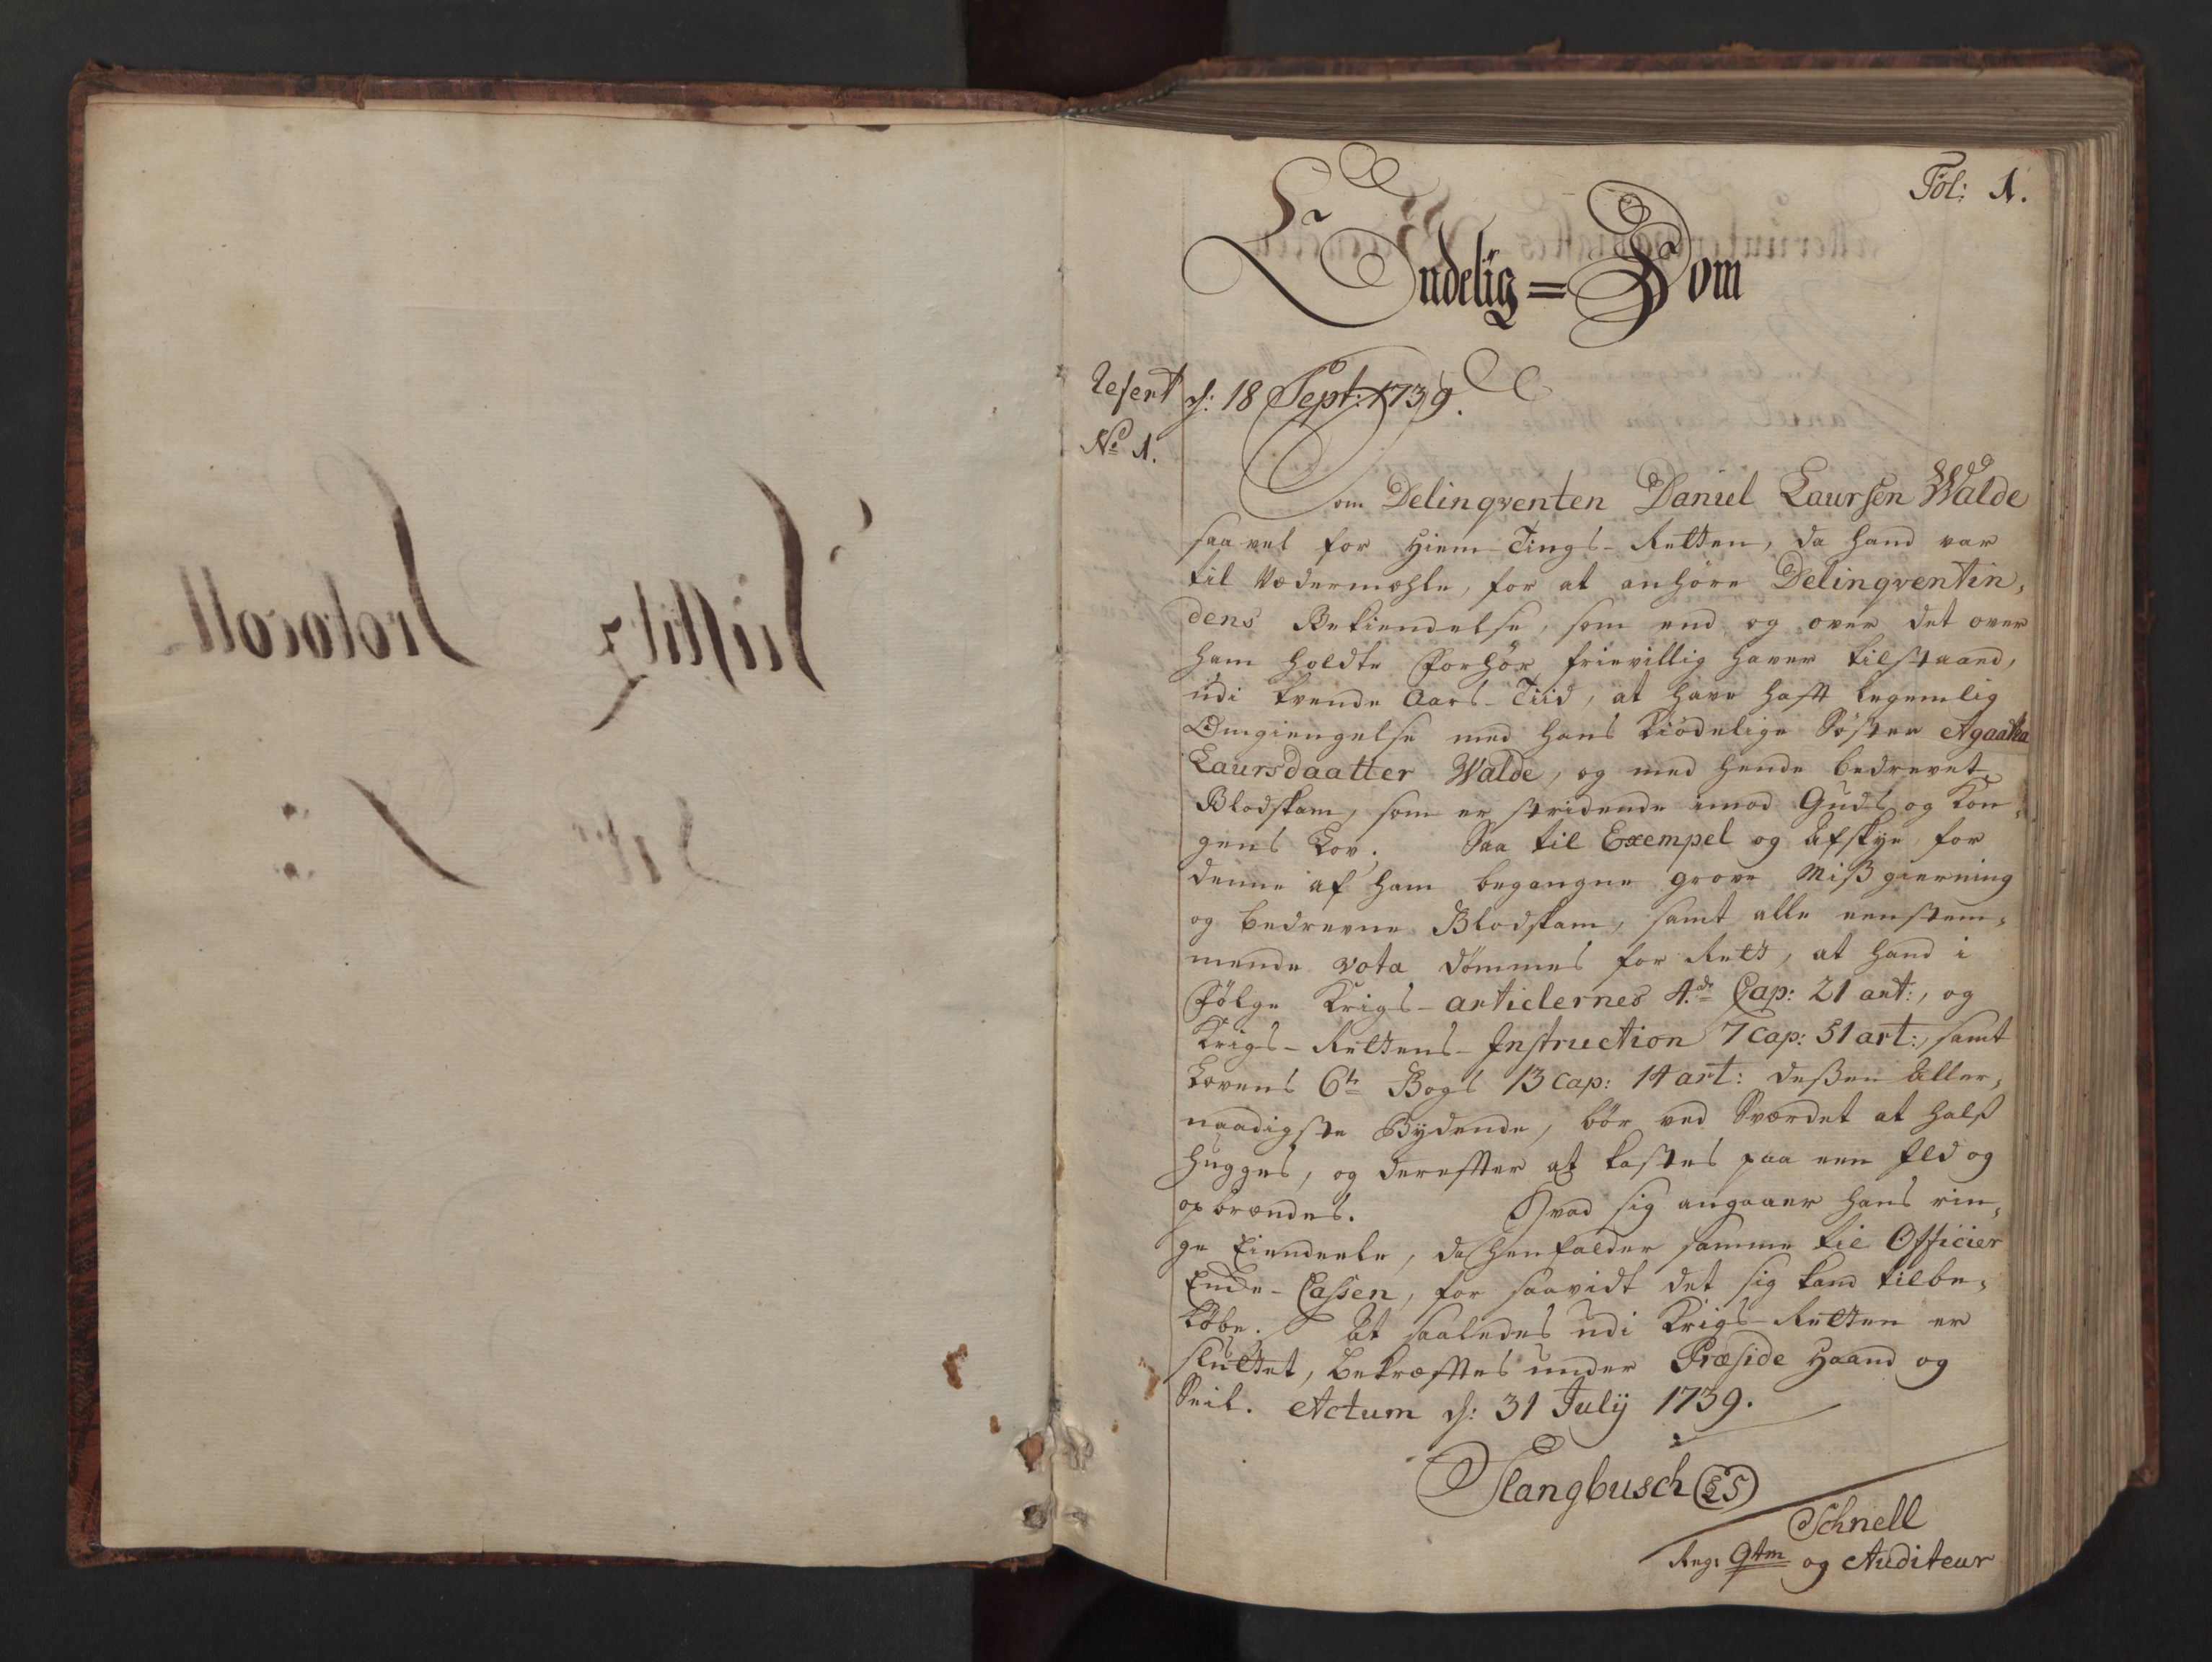 Fol: 1.
Endelig=Dom
Refert d: 18 Sept: 1739.
No 1.
Som Delinqventen Daniel Laursen Walde
saa vel for Hiem-Tings-Retten, da hand var
til Vedermæhle, for at anhöre Delinqventin,
dens Bekiendelse, som end og over det over
ham holdte Forhör frievillig haver tilstaaed,
udi tvende Aars-Tiid, at have haft legemlig
Omgiengelse med hans kiödelige Söster Agaatha
Laursdaatter Walde, og med hende bedrevet
Blodskam, som er stridende imod Guds og Kon,
gens Lov. Saa til Exempel og Afskye for
denne af ham begangne grove Mißgierning
og bedrevne Blodskam, samt alle eenstem,
mende vota dömmes for Rett, at hand i
Fölge Krigs-articlernes 4de Cap: 21 art:, og
Krigs-Rettens-Instruction 7 Cap: 51 art:, samt
Lovens 6te Bogs 13 Cap: 14 art: deßen Aller,
naadigste Bydende, bör ved Sværdet at halß
hugges, og derefter at kastes paa een Ild og
opbrændes. Hvad sig angaaer hans rin,
ge Eiendeele, da henfalder samme til Officier
Enke-Cassen, for saavidt det sig kand tilbe,
löbe. At saaledes udi Krigs-Retten er
sluttet, bekræftes under Præside Haand og
Seil. Actum d: 31 Julij 1739.
Slangbusch LS
Schnell
Reg: Qtm og Auditeur